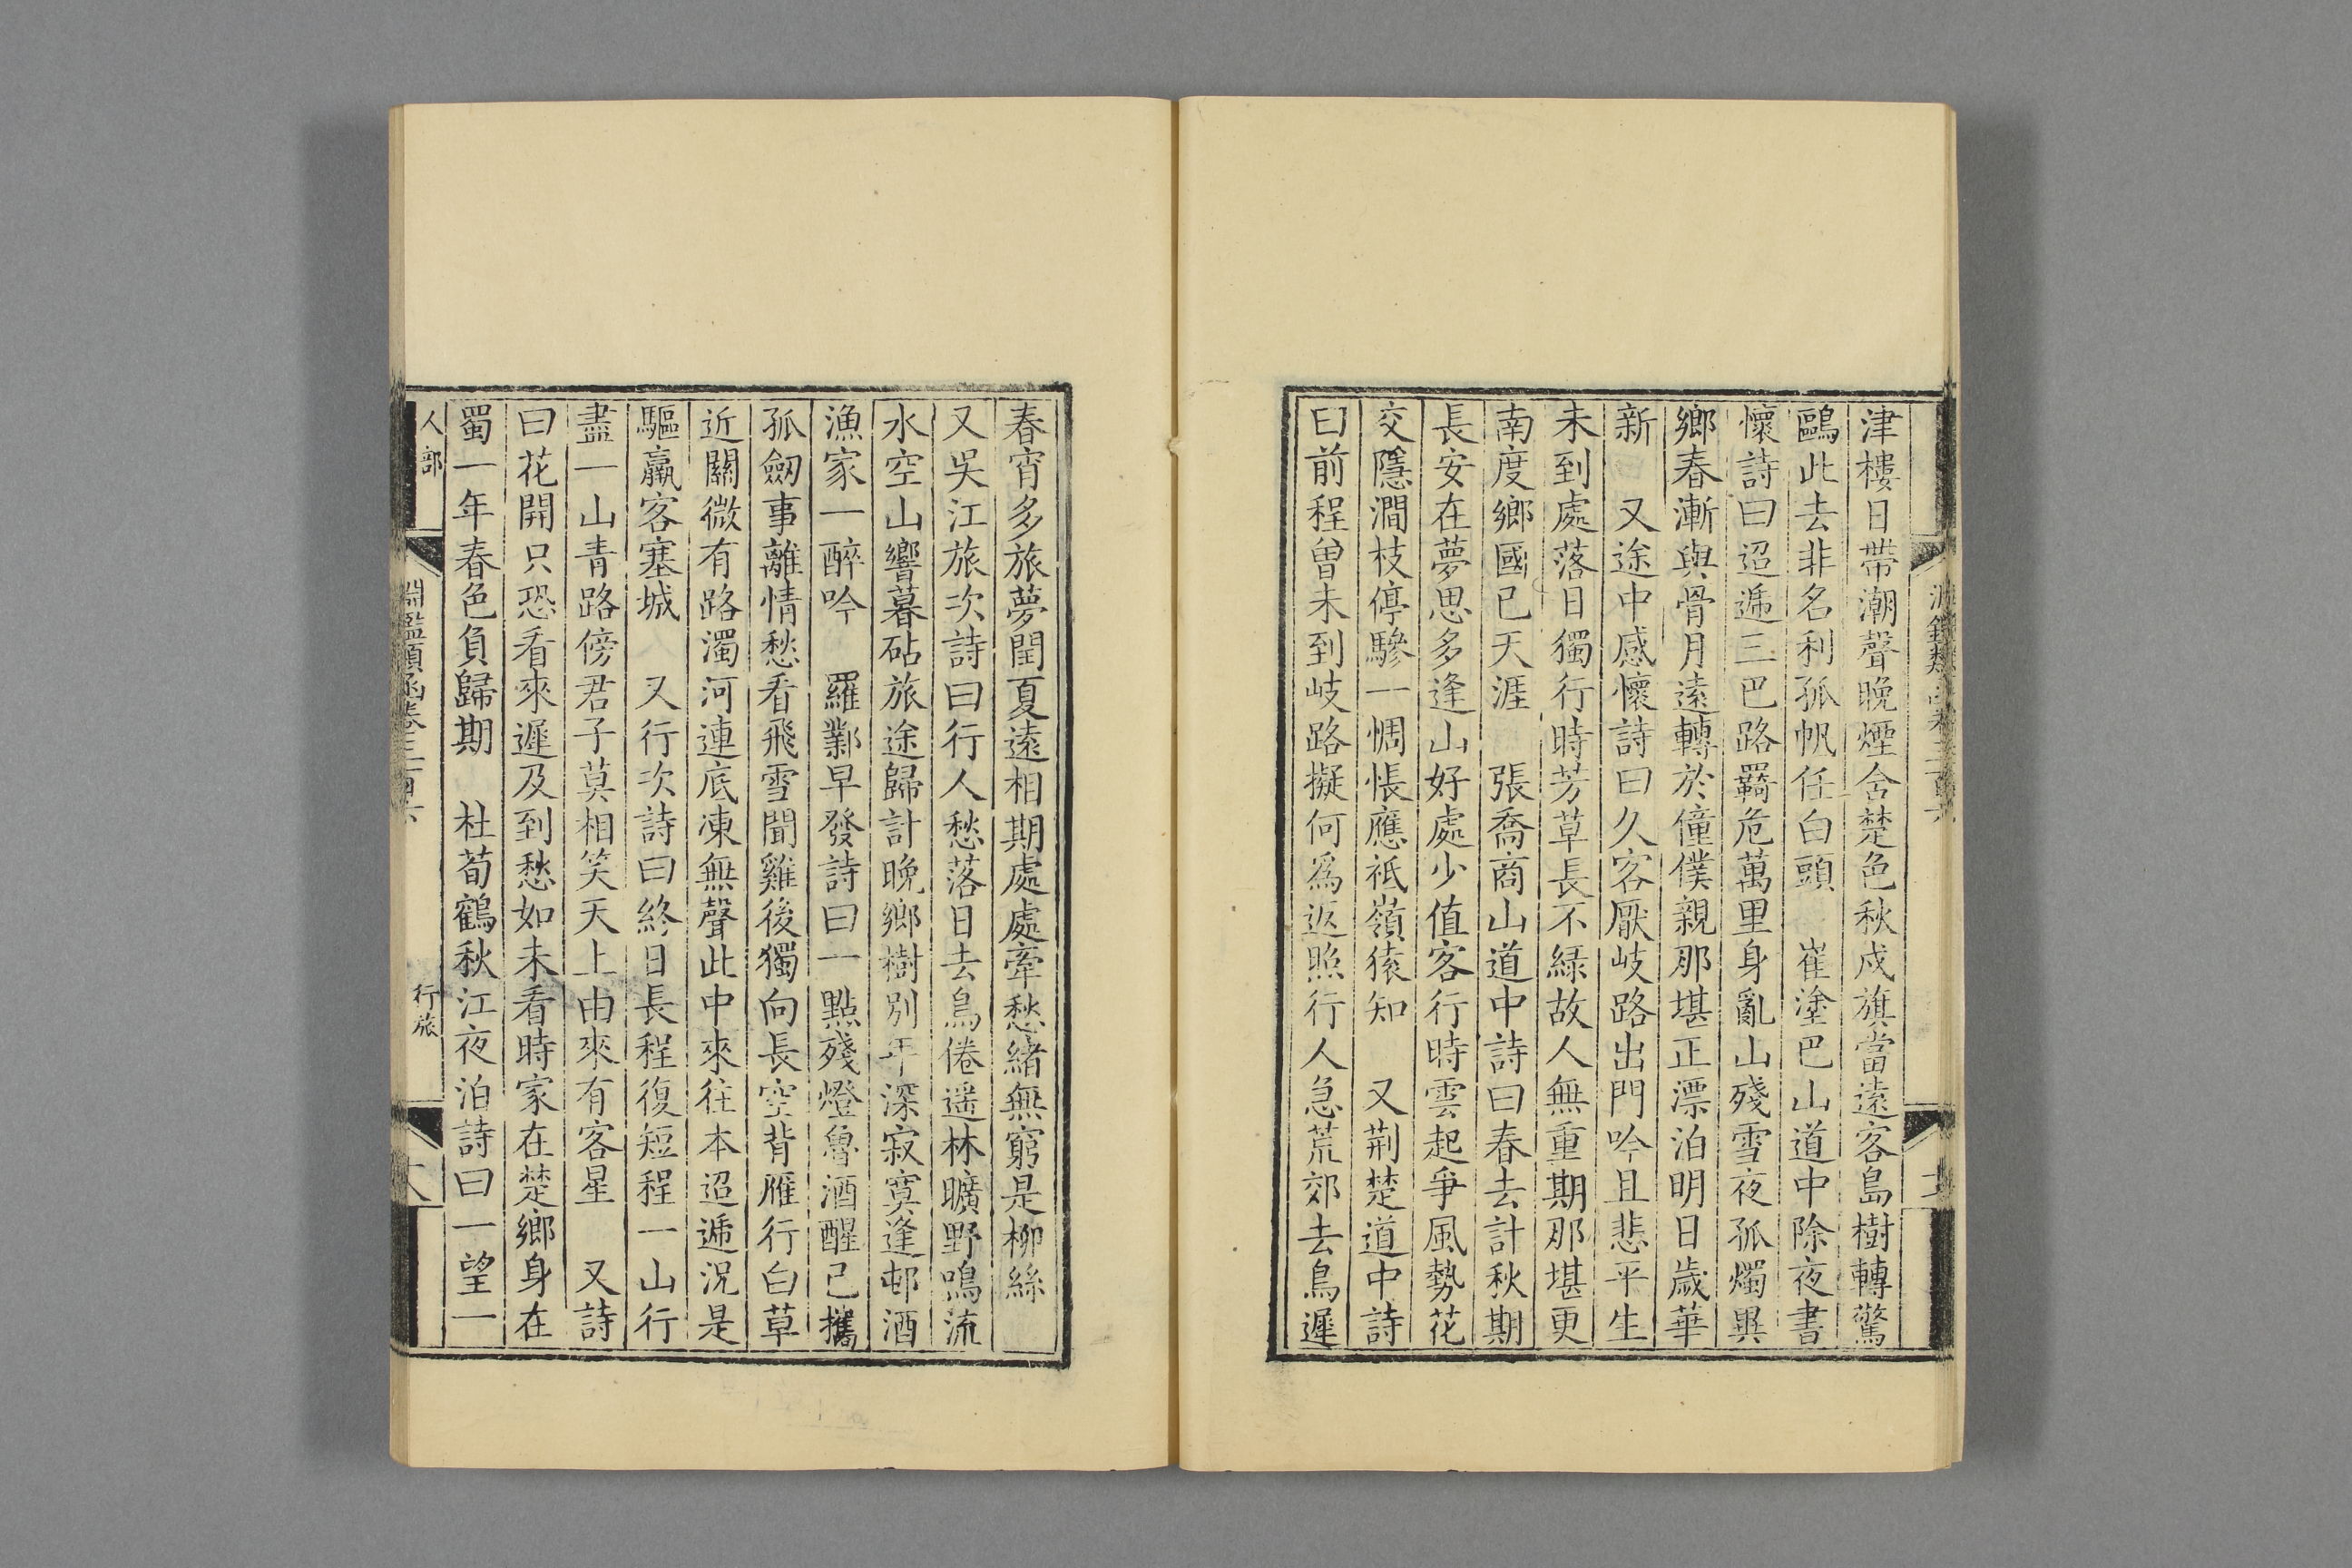 津樓日帶潮聲晚煙含楚色秋戍旗當遠客島樹轉驚
鷗此去非名利孤帆任白頭　崔塗巴山道中除夜書
懷詩曰迢遞三巴路羈危萬里身亂山殘雪夜孤燭異
鄉春漸與骨月遠轉於僮僕親那堪正漂泊明日歲華
新　又途中感懷詩曰久客厭岐路出門吟且悲平生
未到處落日獨行時芳草長不綠故人無重期那堪更
南度鄉國已天涯　張喬商山道中詩曰春去計秋期
長安在夢思多逢山好處少值客行時雲起爭風勢花
交隱澗枝停驂一惆悵應祗嶺猿知　又荆楚道中詩
曰前程曾未到岐路擬何爲返照行人急荒郊去鳥遲
春宵多旅夢閏夏遠相期處處牽愁緒無窮是柳絲
又吳江旅次詩曰行人愁落日去鳥倦遥林曠野鳴流
水空山響暮砧旅途歸計晚鄉樹別年深寂寞逢邨酒
漁家一醉吟　羅鄴早發詩曰一點殘燈魯酒醒已攜
孤劒事離情愁看飛雪聞雞後獨向長空背雁行白草
近關微有路濁河連底凍無聲此中來往本迢遞況是
驅羸客塞城　又行次詩曰終日長程復短程一山行
盡一山青路傍君子莫相笑天上由來有客星　又詩
曰花開只恐看來遲及到愁如未看時家在楚鄉身在
蜀一年春色負歸期　杜荀鶴秋江夜泊詩曰一望一
人部
淵鑑類函卷三百六
行旅